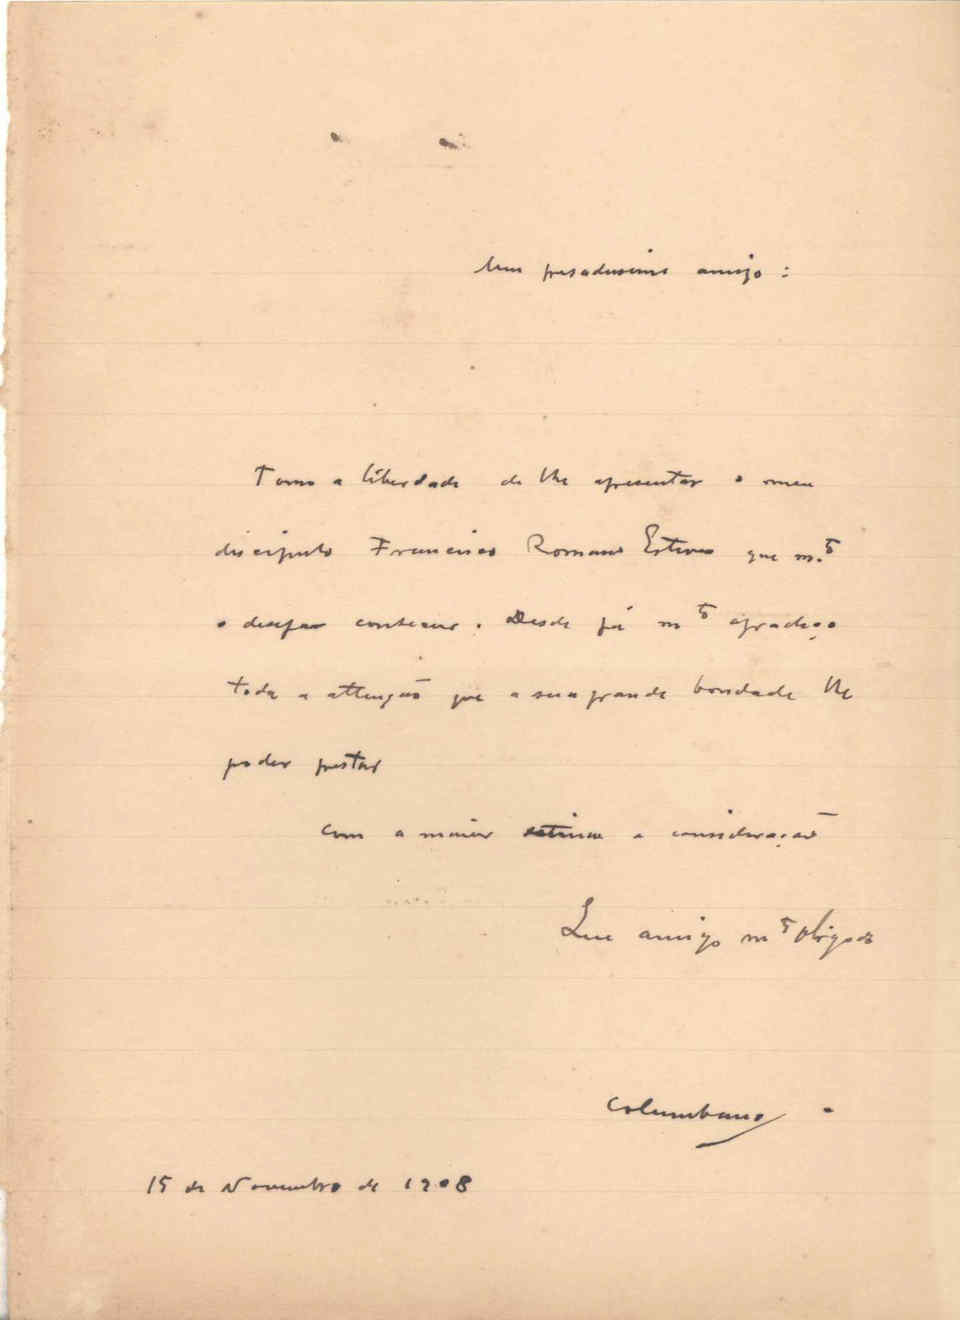 Meu presadissimo amigo:
Tomo a liberdade de lhe apresentar o meu
discipulo Francisco Romano Esteves que m.to
o deseja conhecer. Desde já m to agradeço
toda a attenção que a sua grande bondade lhe
poder prestar
Com a maior estima e consideração
Seu amigo m to obrigado
Columbano
15 de Novembro de 1908